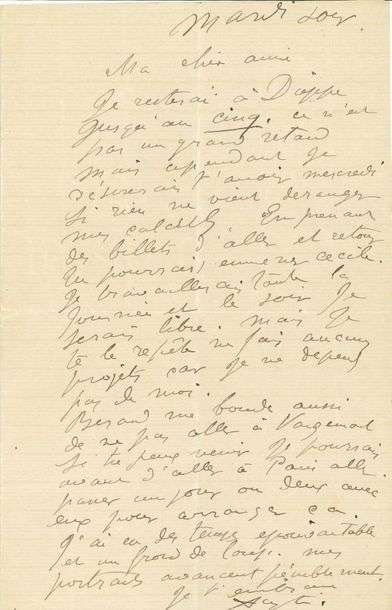 Mardi soir
Ma cher ami
Je resterai à Dieppe
jusqu'au cinq. ce n'est
pas un grand retard
mais cependant je
désirerais t'avoir mercredi
si rien ne vient deranger
mes calculs. En prenant
des billets d'aller et retour
tu pourrais emmener Cecile.
Je travaillerais toute la
journée et le soir je
serais libre. mais je
te le repète ne fais aucun
projets car je ne depend
pas de moi.
Berard me boude aussi
de ne pas aller à Wargemont
si tu peux venir je pourrais
avant d'aller à Paris aller
passer un jour ou deux avec
eux pour arranger ça.
J'ai eu des temps epouvantable
et un froid de loup. mes
portraits avancent péniblement
Je t'